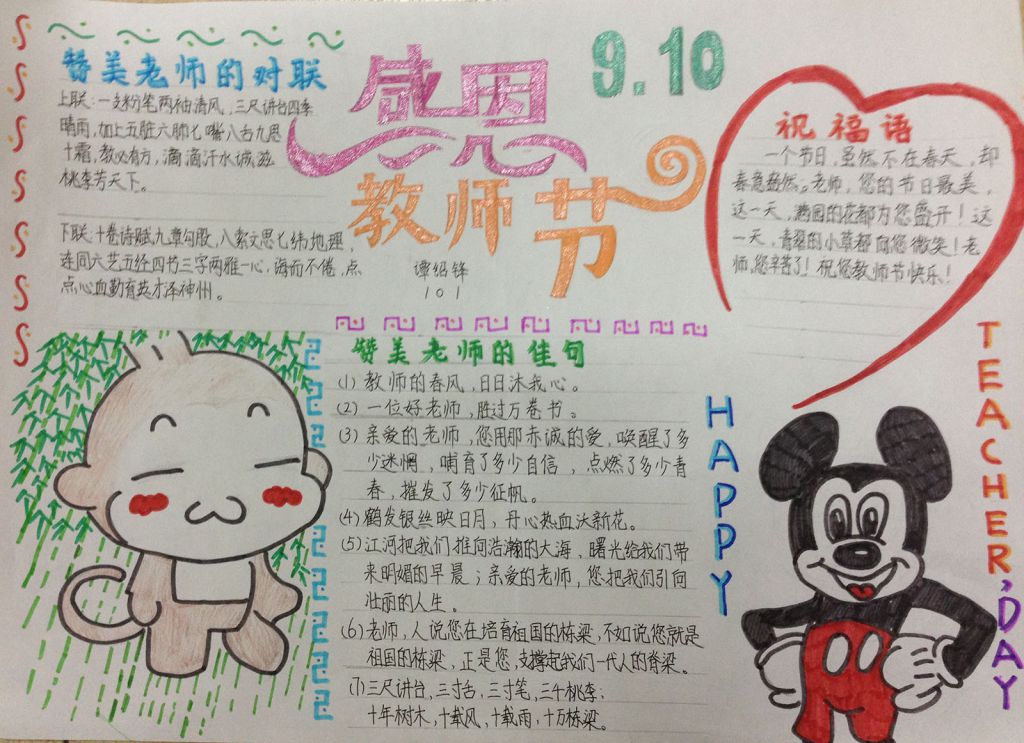 赞美老师的对联
上联:一支粉笔两袖清风,三尺讲台四季
晴雨,加上五脏六肺七嘴八舌九思
十霜,教必有方,滴滴汗水诚滋
桃李芳天下。
下联:十卷诗赋九章勾股,八索文思七纬地理,
连同六艺五经四书三字两雅一心,诲而不倦,点
点心血勤育英才泽神州。
感恩
教师节
9.10
谭绍锋
101
祝福语
一个节日,虽然不在春天,却
春意盎然。老师,您的节日最美,
这一天,满园的花都为您盛开!这
一天,青翠的小草都向您微笑!老
师,您辛苦了!祝您教师节快乐!
赞美老师的佳句
(1) 教师的春风,日日沐我心。
(2) 一位好老师,胜过万卷书。
(3) 亲爱的老师,您用那赤诚的爱,唤醒了多
少迷惘,哺育了多少自信,点燃了多少青
春,摧发了多少征帆。
(4) 鹤发银丝映日月,丹心热血沃新花。
(5) 江河把我们推向浩瀚的大海,曙光给我们带
来明媚的早晨;亲爱的老师,您把我们引向
壮丽的人生。
(6) 老师,人说您在培育祖国的栋梁,不如说您就是
祖国的栋梁,正是您,支撑起我们一代人的脊梁。
(7) 三尺讲台,三寸舌,三寸笔,三千桃李;
十年树木,十载风,十载雨,十万栋梁。
HAPPY
TEACHER'DAY